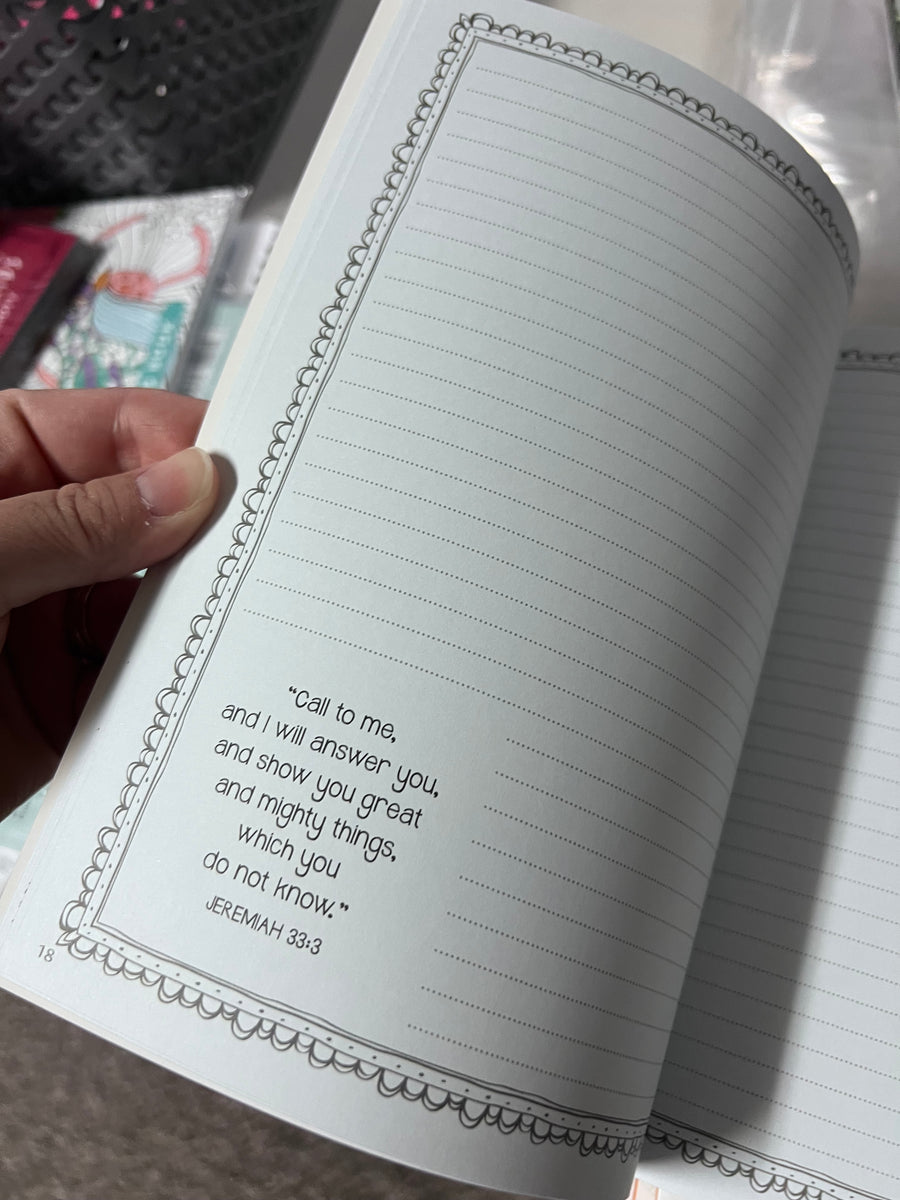 “Call to me,
and I will answer you,
and show you great
and mighty things,
which you
do not know.”
JEREMIAH 33:3
18